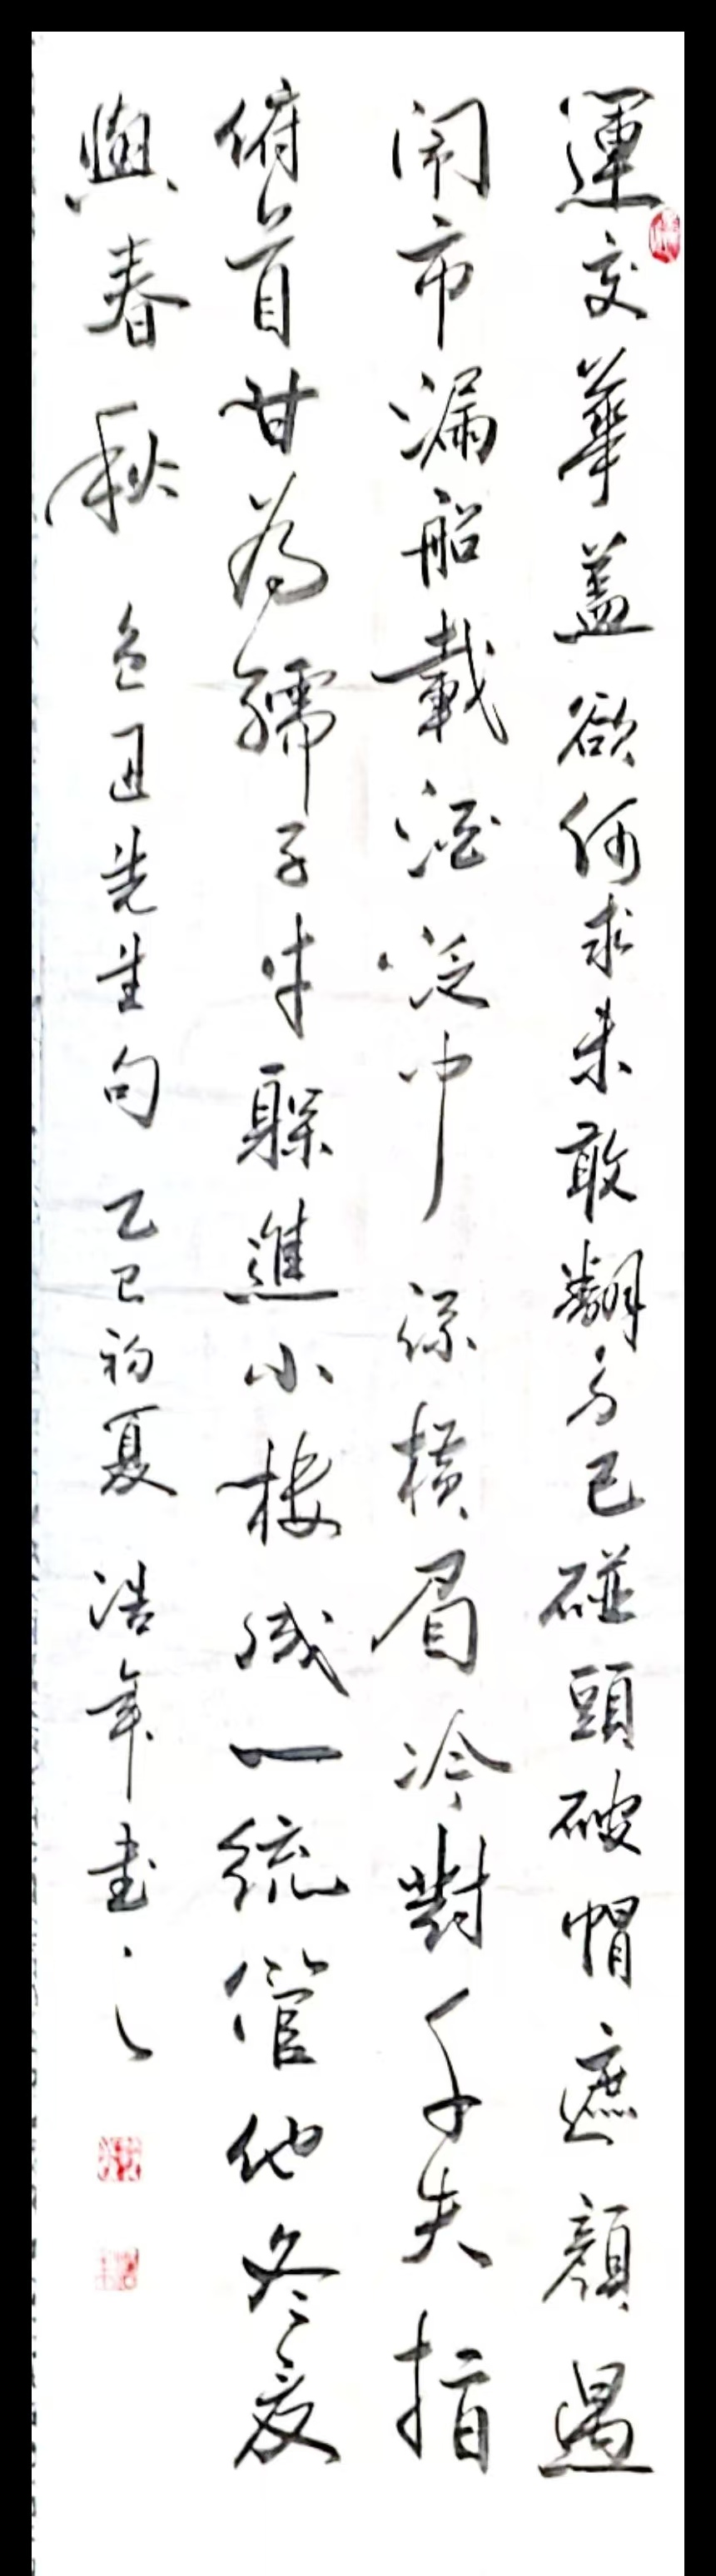 運交華蓋欲何求未敢翻身已碰頭破帽遮顏過
闹市漏船載酒泛中流橫眉冷對千夫指
俯首甘為孺子牛躲進小樓成一統管他冬夏
與春秋 魯迅先生句 乙巳初夏 浩年書之